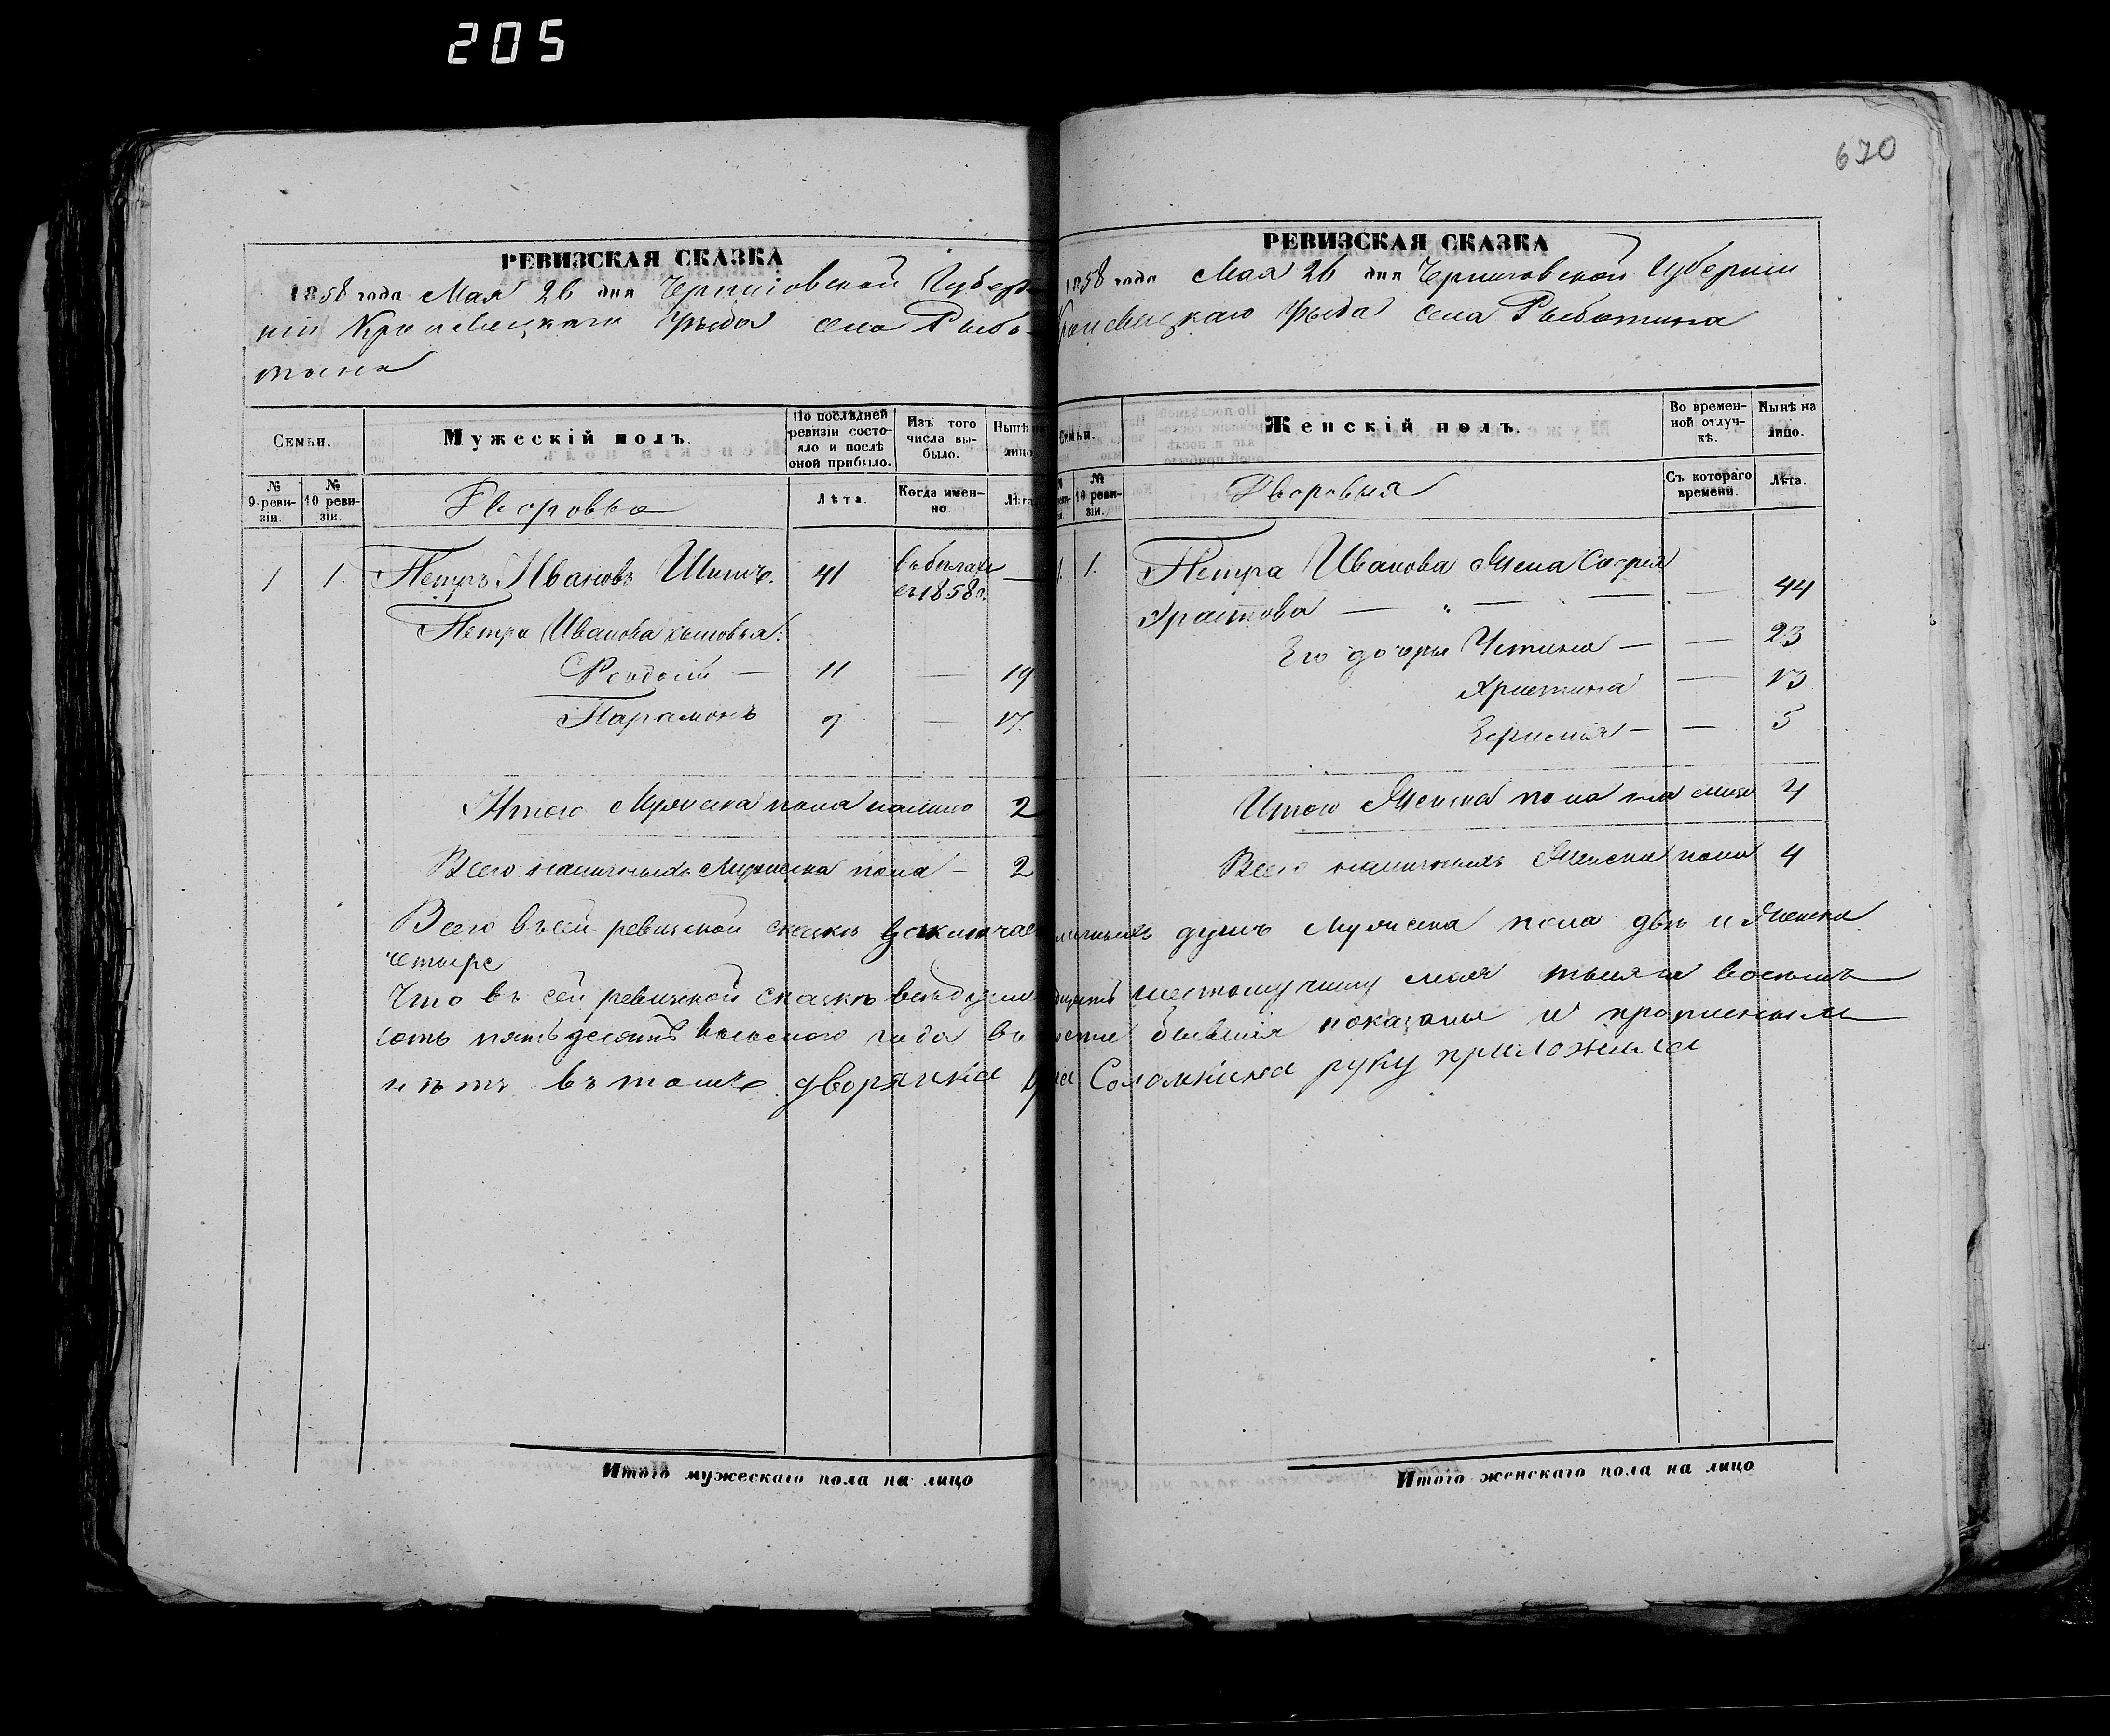 205
670
РЕВИЗСКАЯ СКАЗКА
1858 года Мая 26 дня Черниговской Губер-
ніи Кролевецкаго Уѣзда села Рыбо-
тина
Семьи.
Мужескій полъ.
По послѣдней ревизіи состо-
яло и послѣ оной прибыло.
Изъ того числа вы-
было.
Нынѣ на лицо
№ 9 реви-
зіи.
№ 10 реви-
зіи.
Дворовые
Лѣта.
Когда имен-
но
Лѣта
1 1. Петръ Ивановъ 41 —
въ 1858 г.
Петра Иванова сыновья:
11 — 19
Парамонъ 9 — 17.
Итого Мужеска пола налицо 2
Всего наличныхъ Мужеска пола — 2
РЕВИЗСКАЯ СКАЗКА
1858 года Мая 26 дня Черниговской Губерніи
Кролевецкаго Уѣзда села Рыботина
Семьи.
Женскій полъ.
Во времен-
ной отлуч-
кѣ.
Нынѣ на лицо.
№ 10 реви-
зіи.
Дворовыя
Съ котораго времени.
Лѣта.
1. 1. Петра Иванова Жена Софія
— — — — 44
Его дочери Устинья — — 23
Христина — 13
Ефимія — — 5
Итого Женска пола на лицо 4
Всего наличныхъ Женска пола 4
Всего въ сей ревизской сказкѣ душъ Мужеска пола двѣ и Женска
четыре
Что въ сей ревизской сказкѣ всѣ шестому числу мая тысяча восемь
сотъ пятьдесятъ восьмого года бывшія показаны и прописныхъ
нѣтъ въ томъ дворянка руку приложила
Итого мужескаго пола на лицо
Итого женскаго пола на лицо